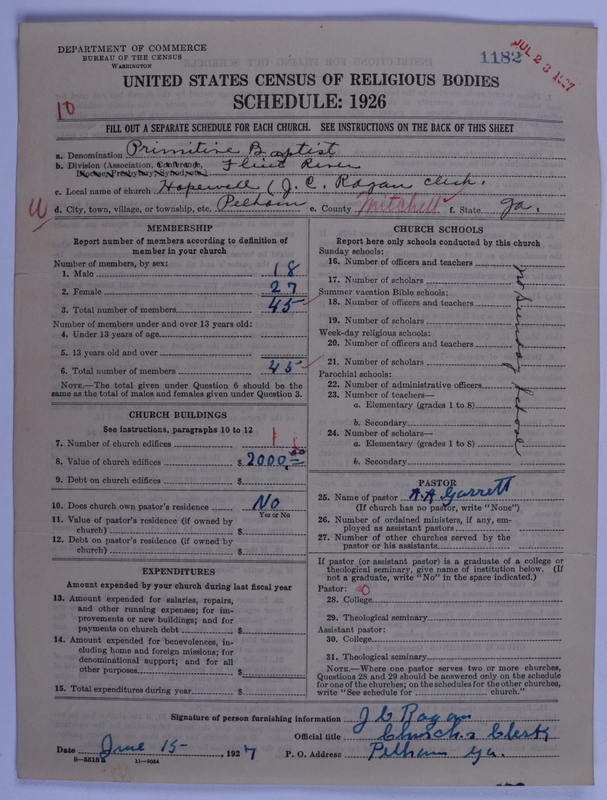 DEPARTMENT OF COMMERCE
BUREAU OF THE CENSUS
WASHINGTON
1182
JUL 23 1927
UNITED STATES CENSUS OF RELIGIOUS BODIES
SCHEDULE: 1926
10
FILL OUT A SEPARATE SCHEDULE FOR EACH CHURCH. SEE INSTRUCTIONS ON THE BACK OF THIS SHEET
a. Denomination Primitive Baptist
b. Division (Association, Conference, Flint River
Diocese, Presbytery, Synod, etc.)
c. Local name of church Hopewell (J. C. Ragan clerk.
d. City, town, village, or township, etc. Pelham e. County Mitchell f. State Ga.
MEMBERSHIP
Report number of members according to definition of
member in your church
Number of members, by sex:
1. Male 18
2. Female 27
3. Total number of members 45
Number of members under and over 13 years old:
4. Under 13 years of age
5. 13 years old and over
6. Total number of members 45
NOTE.—The total given under Question 6 should be the
same as the total of males and females given under Question 3.
CHURCH BUILDINGS
See instructions, paragraphs 10 to 12
7. Number of church edifices 1
8. Value of church edifices $ 2000.00
9. Debt on church edifices $
10. Does church own pastor's residence No
Yes or No
11. Value of pastor's residence (if owned by
church) $
12. Debt on pastor's residence (if owned by
church) $
EXPENDITURES
Amount expended by your church during last fiscal year
13. Amount expended for salaries, repairs,
and other running expenses; for im-
provements or new buildings; and for
payments on church debt $
14. Amount expended for benevolences, in-
cluding home and foreign missions; for
denominational support; and for all
other purposes $
15. Total expenditures during year $
CHURCH SCHOOLS
Report here only schools conducted by this church
Sunday schools:
16. Number of officers and teachers
17. Number of scholars
Summer vacation Bible schools:
18. Number of officers and teachers
19. Number of scholars
Week-day religious schools:
20. Number of officers and teachers
21. Number of scholars
Parochial schools:
22. Number of administrative officers
23. Number of teachers—
a. Elementary (grades 1 to 8)
b. Secondary
24. Number of scholars—
a. Elementary (grades 1 to 8)
b. Secondary
no Sunday School
PASTOR
25. Name of pastor A. A. Garrett
(If church has no pastor, write "None")
26. Number of ordained ministers, if any, em-
ployed as assistant pastors
27. Number of other churches served by the
pastor or his assistants
If pastor (or assistant pastor) is a graduate of a college or
theological seminary, give name of institution below. (If
not a graduate, write "No" in the space indicated.)
Pastor: 0
28. College
29. Theological seminary
Assistant pastor:
30. College
31. Theological seminary
NOTE.—Where one pastor serves two or more churches,
Questions 28 and 29 should be answered only on the schedule
for one of the churches; on the schedules for the other churches,
write "See schedule for church."
Signature of person furnishing information J C Ragan
Official title Church Clerk
Date June 15-, 1927 P. O. Address Pelham Ga.
8—5518a 11—9054